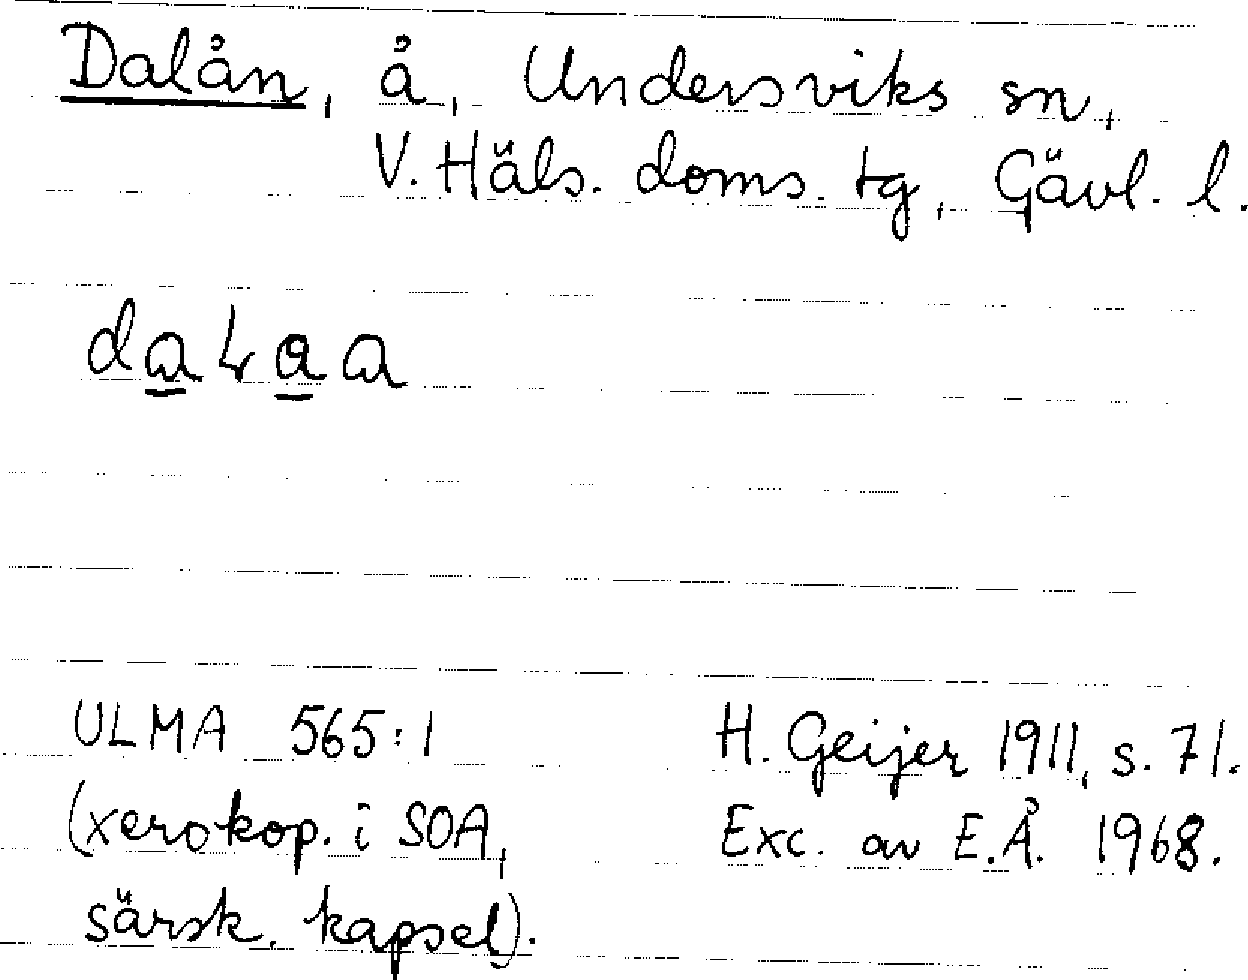 Dalån, å, Undersviks sn,
V. Häls. doms. tg, Gävl. l.
ULMA 565:1
(xerokop. i SOA,
särsk. kapsel).
H. Geijer 1911, s. 71.
Exc. av E.Å. 1968.